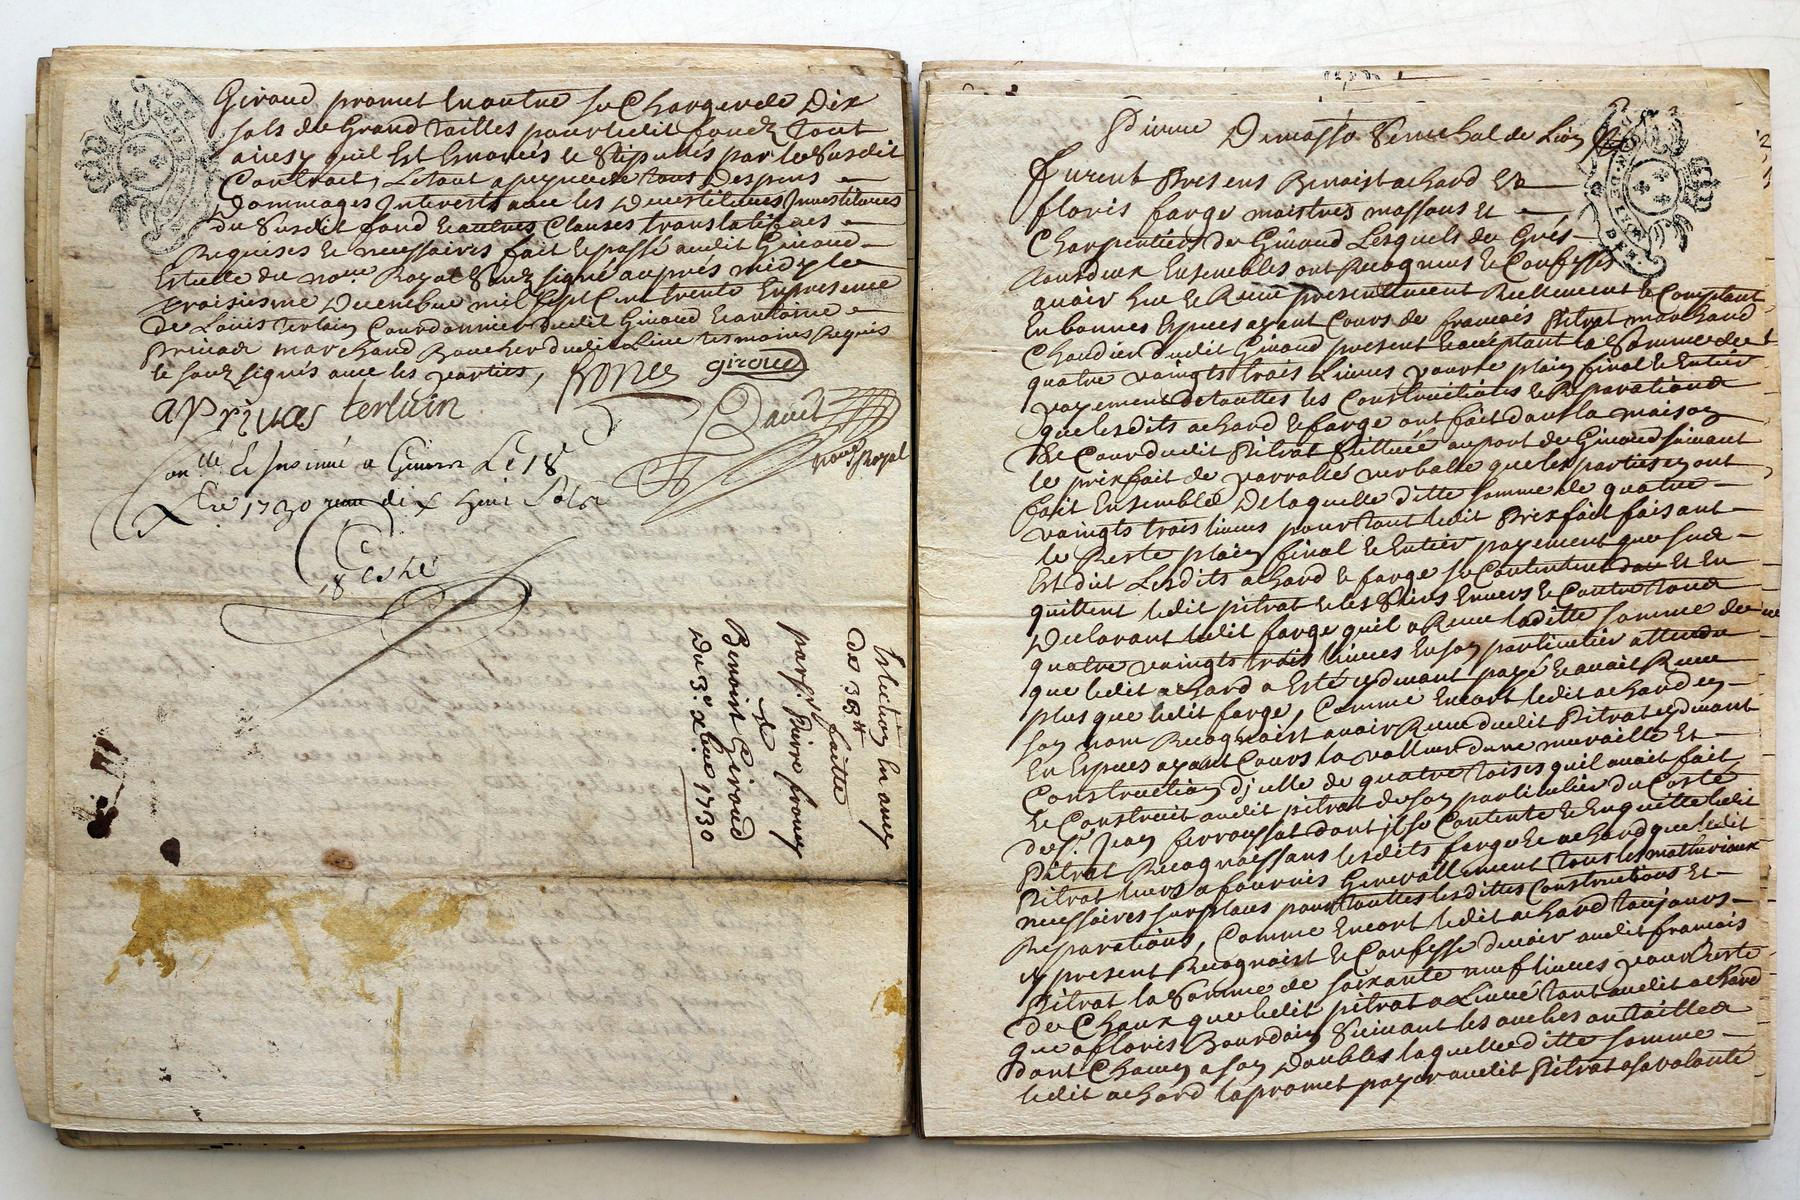 Giraud promet En outre se Charger de Dix
sols de Grand tailles pour ledit fondz tout
ainsy quil Est Enoncés & Stipullés par le Susdit
Contract, Le tout a peyne de tous Despens
Dommages Interests avec les Devestitures Investitures
du Susdit fond & autres Clauses translatifves
Requises & necessaires fait & passé audit Giuord
Estude du no.re Royal Souz signé auprés midy le
troisiesme Decembre mil sept Cent trente En presence
De Louis terlain Courdonnier dudit Giuord & antoine
privas marchand Boucher dudit Lieu tesmoins Requis
& Souz signés avec les parties,
giroud
a Privas terluin
Dauit
no.re Royal
Con.lle & Insinué a Giuors Le 18
1730 dix huit Sols
De 38#
faitte
par s.r Pierre
à
Benoist Giraud
Du 3.e xbre 1730
Demasso Senechal de Lion
furent Presens Benoist achard Et
floris farge maistres massons Et
Charpentiers de Giuord Lesquels de Grés
tous deux Ensembles ont Recognus & Confessés
avoir heu & Receu presentement Reellement & Comptant
En bonnes Especes ayant Cours de francois Pitrat marchand
Chaudier dudit Giuord present & acceptant la Somme de
quatre vaingts trois Livres pour le plain final & Entier
payement de touttes les Constructions & Reparations
que lesdits achard & farge ont fait dans la maison
& Cour dudit Pitrat Scittuée au port de Giuord suivant
le prix fait de parrolle verballe que les parties en ont
fait Ensemble De laquelle ditte somme de quatre
vaingts trois livres pour tout ledit Prix fait faisant
le Reste plain final & Entier payement que sus
Est dit Lesdits achard & farge se Contentent Et En
quittent ledit pitrat & les Siens Envers & Contre tous
Declarant ledit farge quil a Receu laditte somme de
quatre vaingts trois livres En son particulier attendu
que ledit achard a Esté cy devant payé & avait Receu
plus que ledit farge, Comme Encort ledit achard en
son nom Recognoist avoir Receu dudit Pitrat cy devant
En Especes ayant Cours la valleur dune muraille Et
Construction dj celle de quatre toises quil avoit fait
& Construit audit pitrat de son particulier du Costé
de S.r Jean ferroussat dont jl se Contente & En quitte ledit
Pitrat Recognoissans lesdits farge & achard que ledit
Pitrat leurs a fournis Generallement tous les matteriaux
necessaires sur place pour touttes lesdittes Constructions Et
Reparations, Comme Encort ledit achard toujours
cy present Recognoist & Confesse devoir audit francois
Pitrat la Somme de soixante neuf livres pour Reste
de Chaux que ledit pitrat a Livré tant audit achard
que a floris Bourdain Suivant les
dont Chacun a son Doubles laquelle ditte somme
ledit achard la promet payer audit Pitrat a sa volonté